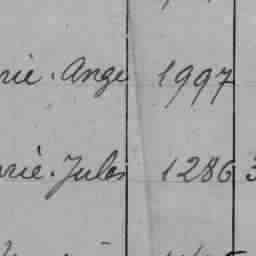 rie. Ange 1997
rie. Jules 1286 3